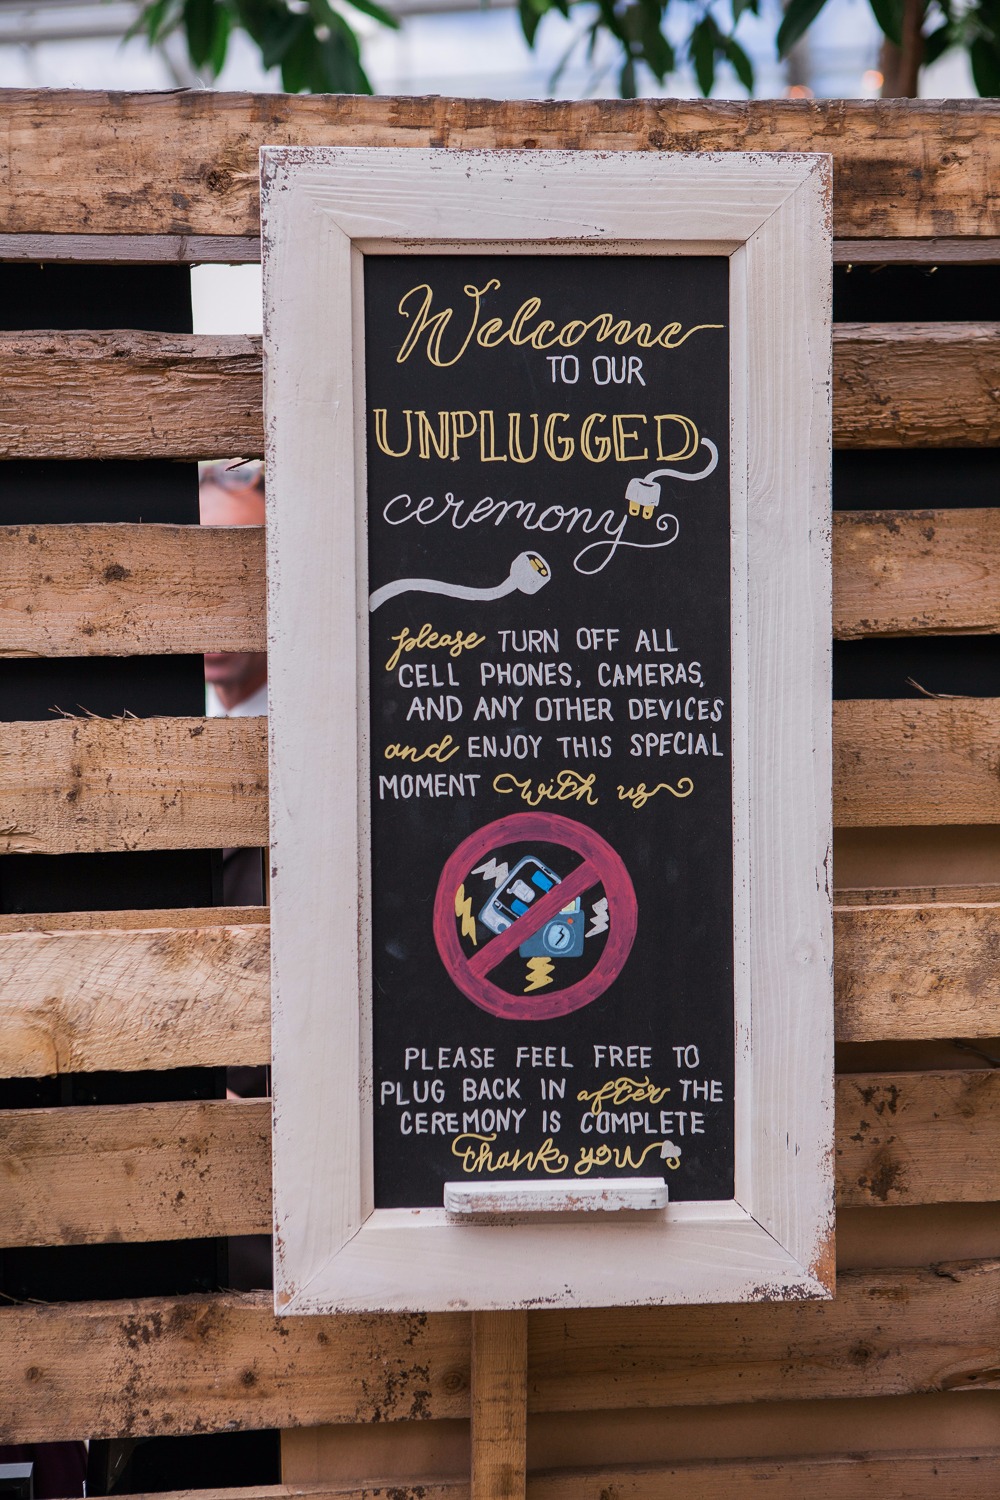 Welcome
TO OUR
UNPLUGGED
ceremony
please TURN OFF ALL
CELL PHONES, CAMERAS,
AND ANY OTHER DEVICES
and ENJOY THIS SPECIAL
MOMENT with us
PLEASE FEEL FREE TO
PLUG BACK IN after THE
CEREMONY IS COMPLETE
Thank you